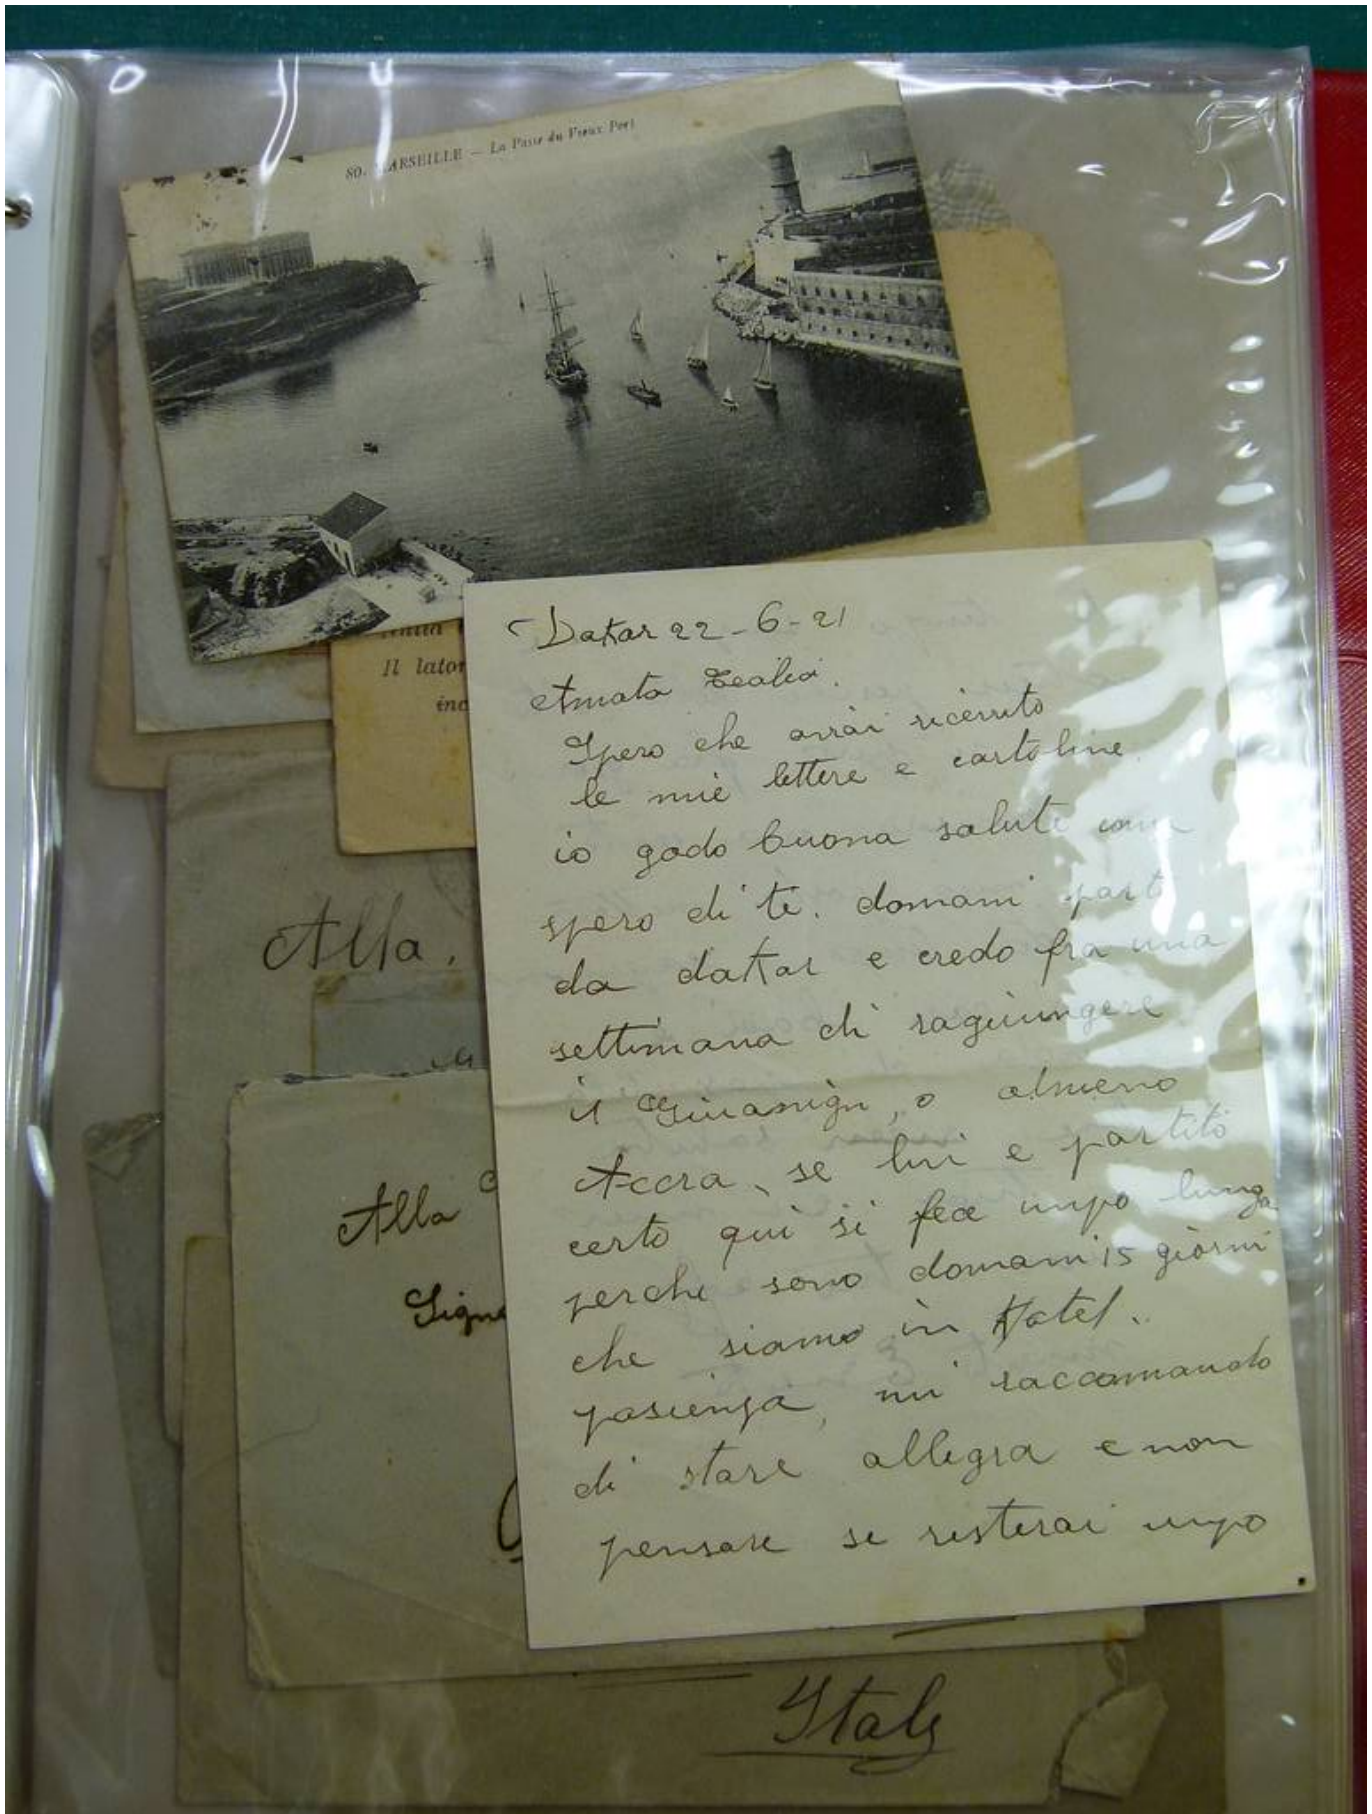 80. MARSEILLE - La Passe du Vieux Port
Il lator
inc
Dakar 22-6-21
Amata
Spero che avrai ricevuto
le mie lettere e cartoline
io godo buona salute come
spero di te. domani part
da daKar e credo fra una
settimana di ragiungere
il o almeno
Accra, se lui e partito
certo qui si fece unpo lunga
perche sono domani 15 giorni
che siamo in Hotel..
pasienza, mi raccomando
di stare allegra e non
pensare se resterai unpo
Alla.
Alla
Signo
Italy